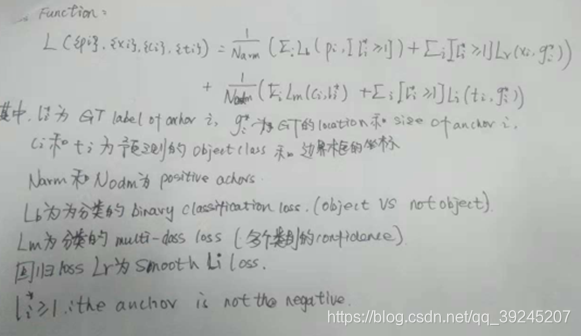 Function:
L({pi}, {xi}, {ci}, {ti}) = 1/Narm (Σi Lb(pi, [li* ≥1]) + Σi [li* ≥1] Lr(xi, gi*))
+ 1/Nodm (Σi Lm(ci, li*) + Σi [li* ≥1] Li(ti, gi*))
其中, li* 为 GT label of anchor i, gi* 为 GT的location和 size of anchor i,
ci 和 ti 为预测的 object class 和 边界框的坐标
Narm 和 Nodm为 positive achors.
Lb为为分类的 binary classification loss. (object vs not object).
Lm为分类的 multi-dass loss (多个类别的confidence).
回归loss Lr为 Smooth Li loss.
li* ≥1, : the anchor is not the negative.
https://blog.csdn.net/qq_39245207